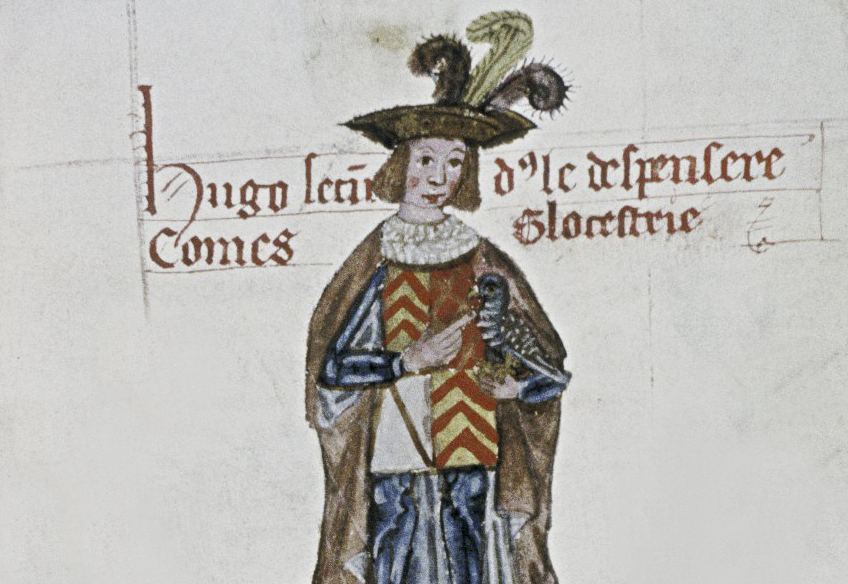 hugo secūdꝰ le despensere
Comes Glocestrie